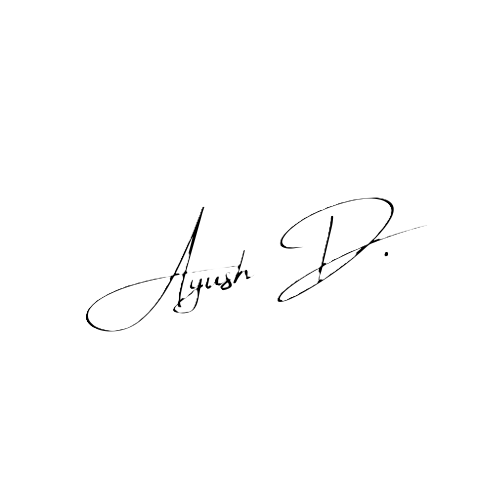 Ayush D.